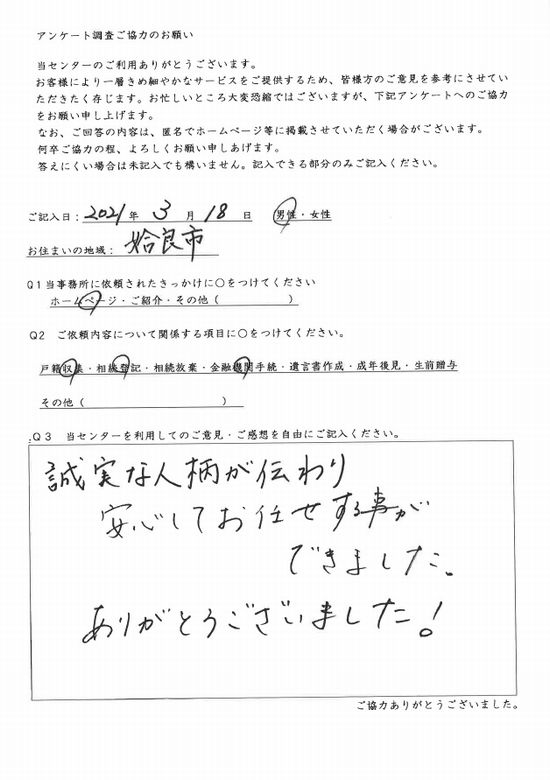 アンケート調査ご協力のお願い
当センターのご利用ありがとうございます。
お客様により一層きめ細やかなサービスをご提供するため、皆様方のご意見を参考にさせてい
ただきたく存じます。お忙しいところ大変恐縮ではございますが、下記アンケートへのご協力
をお願い申し上げます。
なお、ご回答の内容は、匿名でホームページ等に掲載させていただく場合がございます。
何卒ご協力の程、よろしくお願い申しあげます。
答えにくい場合は未記入でも構いません。記入できる部分のみご記入ください。
ご記入日:2021年 3 月 18 日 男性・女性
お住まいの地域: 姶良市
Q1当事務所に依頼されたきっかけに〇をつけてください
ホームページ・ご紹介・その他( )
Q2 ご依頼内容について関係する項目に〇をつけてください。
戸籍収集・相続登記・相続放棄・金融機関手続・遺言書作成・成年後見・生前贈与
その他( )
Q3 当センターを利用してのご意見・ご感想を自由にご記入ください。
誠実な人柄が伝わり
安心してお任せする事が
できました。
ありがとうございました!
ご協力ありがとうございました。